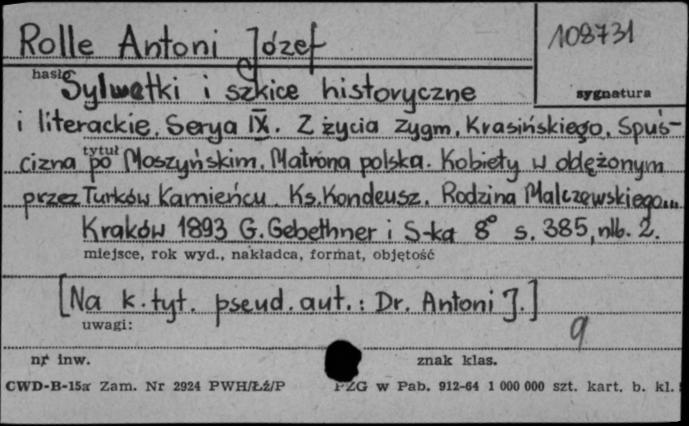 Rolle Antoni Józef
108731
hasło
sygnatura
Sylwetki i szkice historyczne
i literackie. Serya IX. Z życia Zygm. Krasińskiego. Spuś-
tytuł
cizna po Moszyńskim. Matrona polska. Kobiety w oblężonym
przez Turków Kamieńcu. Ks. Kondeusz. Rodzina Malczewskiego...
Kraków 1893 G. Gebethner i S-ka 8° s. 385, nlb. 2.
miejsce, rok wyd., nakładca, format, objętość
[Na k. tyt. pseud. aut.: Dr. Antoni J.]
uwagi:
9
nr inw.
znak klas.
CWD-B-15a Zam. Nr 2924 PWH/Łź/P PZG w Pab. 912-64 1 000 000 szt. kart. b. kl.